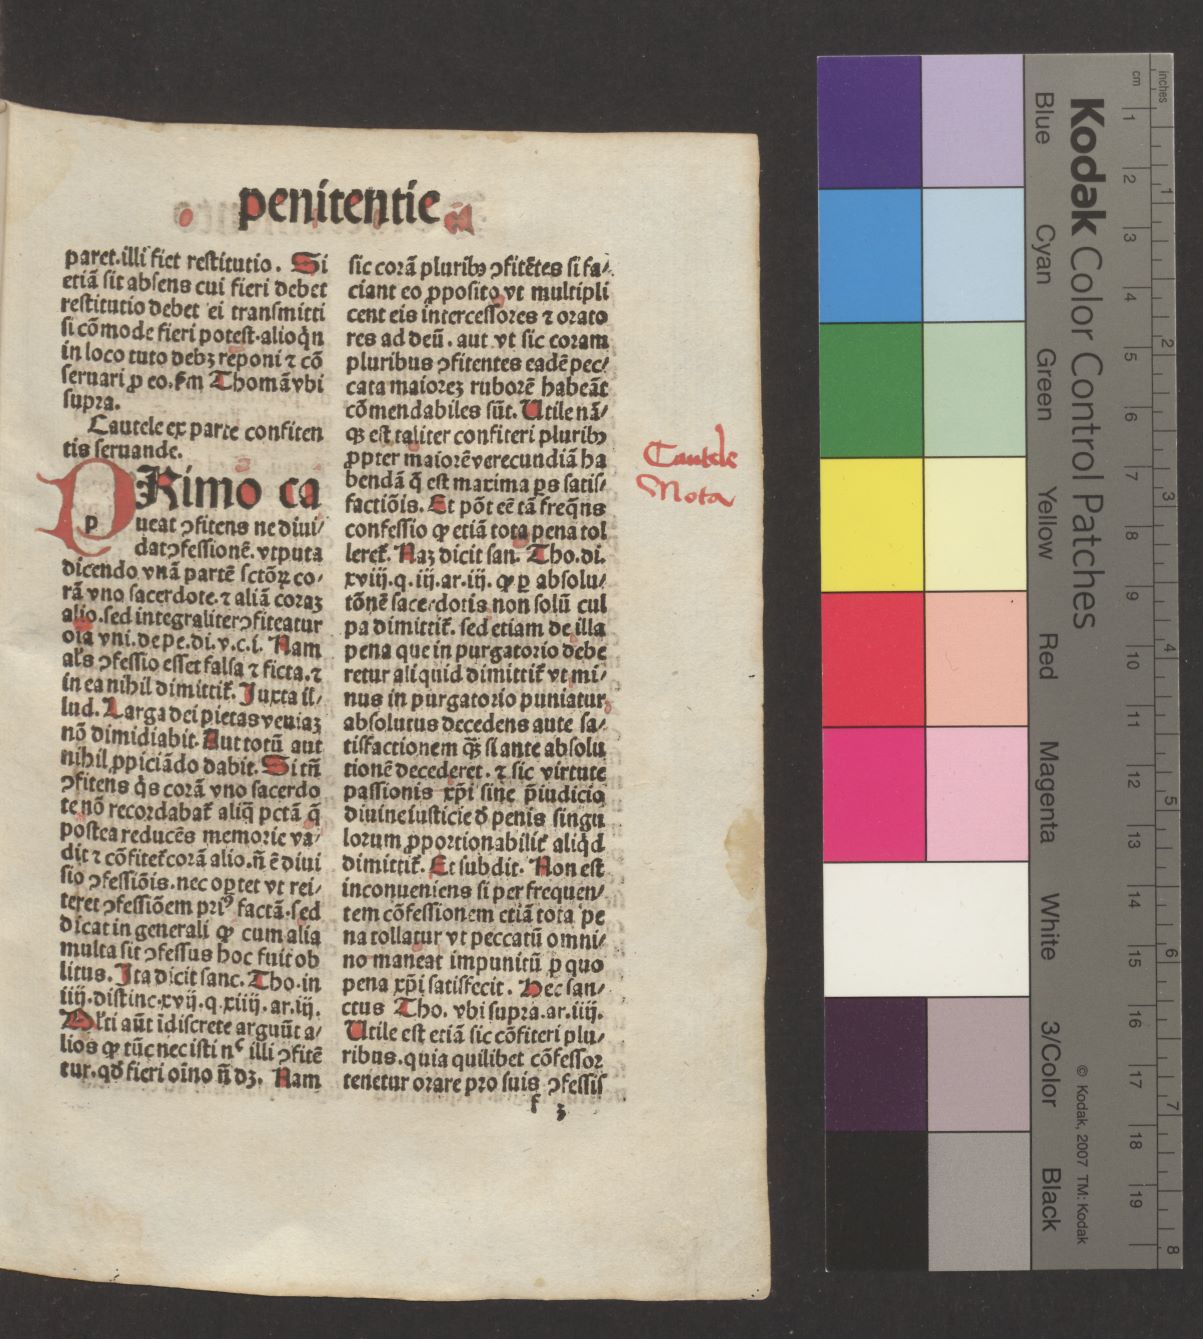 penitentie
paret.illi fiet restitutio. Si
etiã sit absens cui fieri debet
restitutio debet ei transmitti
si cõmode fieri potest.alioqͥn
in loco tuto debꝫ reponi ⁊ cõ
seruari ꝓ eo.ẜm Thomã vbi
supra.
Cautele ex parte confiten
tis seruande.
PRimo ca
p
ueat ꝯfitens ne diui⸗
dat ꝯfessionẽ. vtputa
dicendo vnã partẽ pctõꝝ co⸗
rã vno sacerdote.⁊ aliã coraꝫ
alio.sed integraliter ꝯfiteatur
oĩa vni.de pe.di.v.c.i. Nam
als ꝯfessio esset falsa ⁊ ficta.⁊
in ea nihil dimittit᷑. Juxta il⸗
lud. Larga dei pietas veniaꝫ
nõ dimidiabit. Aut totũ aut
nihil ꝓpiciãdo dabit. Si tñ
ꝯfitens qͥs corã vno sacerdo
te nõ recordabat᷑ aliq̃ pctã q̃
postea reducẽs memorie va⸗
dit ⁊ cõfitet᷑ corã alio.ñ ẽ diui
sio ꝯfessiõis.nec oꝑtet vt rei⸗
teret ꝯfessiõem priꝰ factã.sed
dicat in generali ꝙ cum alia
multa sit ꝯfessus hoc fuit ob
litus. Ita dicit sanc. Tho.in
iiij.distinc.xvij.q.xiiij.ar.ij.
Alti aũt ĩdiscrete arguũt a⸗
lios ꝙ tũc nec isti nᶜ illi ꝯfitẽ
tur.qđ fieri oĩno ñ dꝫ. Nam
sic corã pluribꝰ ꝯfitẽtes si fa⸗
ciant eo ꝓposito vt multipli
cent eis intercessores ⁊ orato
res ad deũ. aut vt sic coram
pluribus ꝯfitentes eadẽ pec⸗
cata maioreꝫ ruborẽ habeãt
cõmendabiles sũt. Utile nã⸗
qꝫ est taliter confiteri pluribꝰ
ꝓpter maiorẽ verecundiã ha
bendã q̃ est maxima ps satis⸗
factiõis. Et põt eẽ tã freq̃ns
confessio ꝙ etiã tota pena tol
leret᷑. Naꝫ dicit san. Tho.di.
xviij.q.iij.ar.iij. ꝙ ꝑ absolu⸗
tõnẽ sacerdotis non solũ cul
pa dimittit᷑. sed etiam de illa
pena que in purgatorio debe
retur aliquid dimittit᷑ vt mi⸗
nus in purgatorio puniatur
absolutus decedens ante sa⸗
tisfactionem qꝫ̃ si ante absolu
tionẽ decederet. ⁊ sic virtute
passionis xp̃i sine p̃iudicio
diuine iusticie đ penis singu
lorum ꝓportionabilit᷑ aliqͥd
dimittit᷑. Et subdit. Non est
inconueniens si per frequen⸗
tem cõfessionem etiã tota pe
na tollatur vt peccatũ omni⸗
no maneat impunitũ ꝑ quo
pena xp̃i satisfecit. Hec san⸗
ctus Tho. vbi supra.ar.iiij.
Utile est etiã sic cõfiteri plu⸗
ribus.quia quilibet cõfessor
tenetur orare pro suis ꝯfessis
f 3
Cautele
Nota
Kodak Color Control Patches
Blue Cyan Green Yellow Red Magenta White 3/Color Black
© Kodak, 2007 TM: Kodak
cm 1 2 3 4 5 6 7 8 9 10 11 12 13 14 15 16 17 18 19
inches 1 2 3 4 5 6 7 8